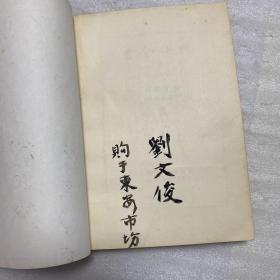 劉文俊
購于東安市坊